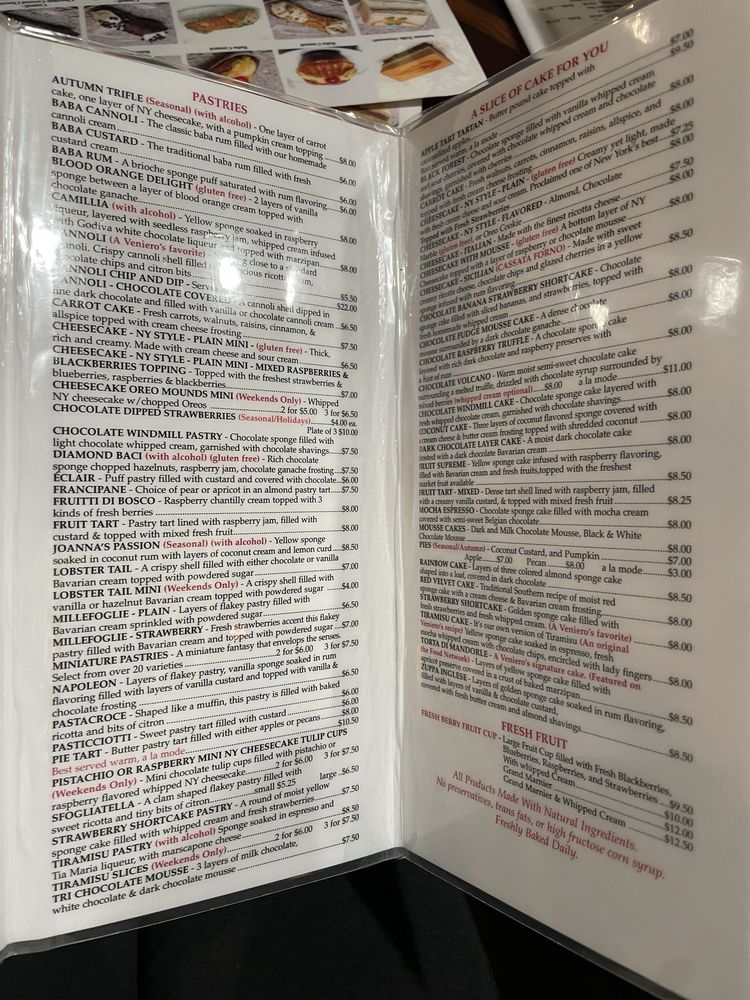 PASTRIES
AUTUMN TRIFLE (Seasonal) (with alcohol) - One layer of carrot
cake, one layer of NY cheesecake, with a pumpkin cream topping
$8.00
BABA CANNOLI - The classic baba rum filled with our homemade
cannoli cream $6.00
BABA CUSTARD - The traditional baba rum filled with fresh
custard cream $6.00
BABA RUM - A brioche sponge puff saturated with rum flavoring $6.00
BLOOD ORANGE DELIGHT (gluten free) - 2 layers of vanilla
sponge between a layer of blood orange cream topped with
chocolate ganache $8.00
CAMILLIA (with alcohol) - Yellow sponge soaked in raspberry
liqueur, layered with seedless raspberry jam, whipped cream infused
with Godiva white chocolate liqueur and topped with marzipan $8.00
CANNOLI (A Veniero's favorite) close to a standard
cannoli. Crispy cannoli shell filled ricotta cream,
chocolate chips and citron bits $5.50
CANNOLI CHIP AND DIP - $22.00
CANNOLI - CHOCOLATE COVERED - A cannoli shell dipped in
fine dark chocolate and filled with vanilla or chocolate cannoli cream $6.50
CARROT CAKE - Fresh carrots, walnuts, raisins, cinnamon, &
allspice topped with cream cheese frosting $7.50
CHEESECAKE - NY STYLE - PLAIN MINI - (gluten free) - Thick,
rich and creamy. Made with cream cheese and sour cream $6.50
CHEESECAKE - NY STYLE - PLAIN MINI - MIXED RASPBERRIES &
BLACKBERRIES TOPPING - Topped with the freshest strawberries &
blueberries, raspberries & blackberries $7.00
CHEESECAKE OREO MOUNDS MINI (Weekends Only) - Whipped
NY cheesecake w/chopped Oreos 2 for $5.00 3 for $6.50
CHOCOLATE DIPPED STRAWBERRIES (Seasonal/Holidays) $4.00 ea.
Plate of 3 $10.00
CHOCOLATE WINDMILL PASTRY - Chocolate sponge filled with
light chocolate whipped cream, garnished with chocolate shavings $7.50
DIAMOND BACI (with alcohol) (gluten free) - Rich chocolate
sponge chopped hazelnuts, raspberry jam, chocolate ganache frosting $7.50
ÉCLAIR - Puff pastry filled with custard and covered with chocolate $6.00
FRANCIPANE - Choice of pear or apricot in an almond pastry tart $7.50
FRUITTI DI BOSCO - Raspberry chantilly cream topped with 3
kinds of fresh berries $8.00
FRUIT TART - Pastry tart lined with raspberry jam, filled with
custard & topped with mixed fresh fruit $8.00
JOANNA'S PASSION (Seasonal) (with alcohol) - Yellow sponge
soaked in coconut rum with layers of coconut cream and lemon curd $8.50
LOBSTER TAIL - A crispy shell filled with either chocolate or vanilla
Bavarian cream topped with powdered sugar $7.00
LOBSTER TAIL MINI (Weekends Only) - A crispy shell filled with
vanilla or hazelnut Bavarian cream topped with powdered sugar $4.00
MILLEFOGLIE - PLAIN - Layers of flakey pastry filled with
Bavarian cream sprinkled with powdered sugar $6.50
MILLEFOGLIE - STRAWBERRY - Fresh strawberries accent this flakey
pastry filled with Bavarian cream and topped with powdered sugar $7.00
MINIATURE PASTRIES - A miniature fantasy that envelops the senses.
Select from over 20 varieties 2 for $6.00 3 for $7.50
NAPOLEON - Layers of flakey pastry, vanilla sponge soaked in rum
flavoring filled with layers of vanilla custard and topped with vanilla &
chocolate frosting $6.50
PASTACROCE - Shaped like a muffin, this pastry is filled with baked
ricotta and bits of citron $6.00
PASTICCIOTTI - Sweet pastry tart filled with custard $6.00
PIE TART - Butter pastry tart filled with either apples or pecans $8.00
Best served warm, a la mode $10.50
PISTACHIO OR RASPBERRY MINI NY CHEESECAKE TULIP CUPS
(Weekends Only) - Mini chocolate tulip cups filled with pistachio or
raspberry flavored whipped NY cheesecake 2 for $6.00 3 for $7.50
SFOGLIATELLA - A clam shaped flakey pastry filled with
sweet ricotta and tiny bits of citron small $5.25 large $6.50
STRAWBERRY SHORTCAKE PASTRY - A round of moist yellow
sponge cake filled with whipped cream and fresh strawberries $7.50
TIRAMISU PASTRY (with alcohol) Sponge soaked in espresso and
Tia Maria liqueur, with marscapone cheese $8.50
TIRAMISU SLICES (Weekends Only) 2 for $6.00 3 for $7.50
TRI CHOCOLATE MOUSSE - 3 layers of milk chocolate,
white chocolate & dark chocolate mousse $7.50
A SLICE OF CAKE FOR YOU
APPLE TART TARTAN - Butter pound cake topped with
caramelized apples $7.00
Best served warm, a la mode $9.50
BLACK FOREST - Chocolate sponge filled with vanilla whipped cream
and sour cherries, covered with chocolate whipped cream and chocolate
$8.00
CARROT CAKE - Fresh walnuts, carrots, cinnamon, raisins, allspice, and
topped with fresh cream cheese frosting $8.00
CHEESECAKE - NY STYLE - PLAIN - (gluten free) Creamy yet light, made
with fresh cream cheese and sour cream. Proclaimed one of New York's best $7.25
Topped with Fresh Strawberries $8.00
CHEESECAKE - NY STYLE - FLAVORED - Almond, Chocolate
Marble (gluten free), or Oreo Cookie $7.50
CHEESECAKE - ITALIAN - Made with the finest ricotta cheese $8.00
CHEESECAKE WITH MOUSSE - (gluten free) A bottom layer of NY
Cheesecake topped with a layer of raspberry or chocolate mousse
CHEESECAKE - SICILIAN (CASSATA FORNO) - Made with sweet
creamy ricotta cheese, chocolate chips and glazed cherries in a yellow
sponge infused with rum flavoring $8.50
CHOCOLATE BANANA STRAWBERRY SHORTCAKE - Chocolate
sponge cake filled with sliced bananas, and strawberries, topped with
fresh homemade whipped cream $8.00
CHOCOLATE FUDGE MOUSSE CAKE - A dense chocolate
mousse surrounded by a dark chocolate ganache $8.00
CHOCOLATE RASPBERRY TRUFFLE - A chocolate sponge cake
layered with rich dark chocolate and raspberry preserves with
a hint of rum $8.00
CHOCOLATE VOLCANO - Warm moist semi-sweet chocolate cake
surrounding a melted truffle, drizzled with chocolate syrup surrounded by
mixed berries (whipped cream optional) $8.00 a la mode $11.00
CHOCOLATE WINDMILL CAKE - Chocolate sponge cake layered with
fresh whipped chocolate cream, garnished with chocolate shavings $8.00
COCONUT CAKE - Three layers of coconut flavored sponge covered with
cream cheese & butter cream frosting topped with shredded coconut $8.00
DARK CHOCOLATE LAYER CAKE - A moist dark chocolate cake
frosted with a dark chocolate Bavarian cream $8.00
FRUIT SUPREME - Yellow sponge cake infused with raspberry flavoring,
filled with Bavarian cream and fresh fruits, topped with the freshest
market fruit available $8.50
FRUIT TART - MIXED - Dense tart shell lined with raspberry jam, filled
with a creamy vanilla custard, & topped with mixed fresh fruit $8.25
MOCHA ESPRESSO - Chocolate sponge cake filled with mocha cream
covered with semi-sweet Belgian chocolate $8.00
MOUSSE CAKES - Dark and Milk Chocolate Mousse, Black & White
Chocolate Mousse $8.00
PIES (Seasonal/Autumn) - Coconut Custard, and Pumpkin $7.00
Apple $7.00 Pecan $8.00 a la mode $3.00
RAINBOW CAKE - Layers of three colored almond sponge cake
shaped into a loaf, covered in dark chocolate $8.50
RED VELVET CAKE - Traditional Southern recipe of moist red
sponge cake with a cream cheese & Bavarian cream frosting $8.50
STRAWBERRY SHORTCAKE - Golden sponge cake filled with
fresh strawberries and fresh whipped cream. (A Veniero's favorite) $8.00
TIRAMISU CAKE - It's our own version of Tiramisu (An original
Veniero's recipe) Yellow sponge cake soaked in espresso, fresh
mocha whipped cream with chocolate chips, encircled with lady fingers $8.00
TORTA DI MANDORLE - A Veniero's signature cake. (Featured on
the Food Network) - Layers of yellow sponge cake filled with
apricot preserve covered in a crust of baked marzipan $8.50
ZUPPA INGLESE - Layers of golden sponge cake soaked in rum flavoring,
filled with layers of vanilla & chocolate custard,
covered with fresh butter cream and almond shavings $8.50
FRESH FRUIT
FRESH BERRY FRUIT CUP - Large Fruit Cup filled with Fresh Blackberries,
Blueberries, Raspberries, and Strawberries $9.50
With whipped Cream $10.00
Grand Marnier $12.00
Grand Marnier & Whipped Cream $12.50
All Products Made With Natural Ingredients.
No preservatives, trans fats, or high fructose corn syrup.
Freshly Baked Daily.